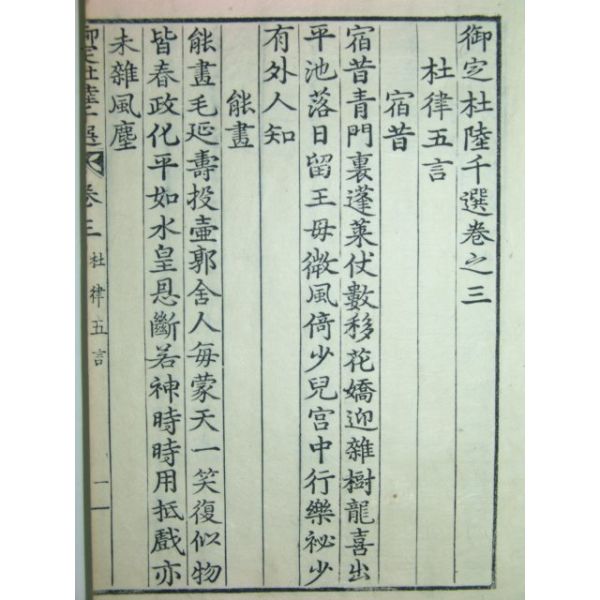 御定杜陸千選卷之三
杜律五言
宿昔
宿昔青門裏蓬萊仗數移花嬌迎雜樹龍喜出
平池落日留王母微風倚少兒宮中行樂祕少
有外人知
能畫
能畫毛延壽投壺郭舍人每蒙天一笑復似物
皆春政化平如水皇恩斷若神時時用抵戲亦
未雜風塵
御定杜陸千選 卷三 杜律五言 一